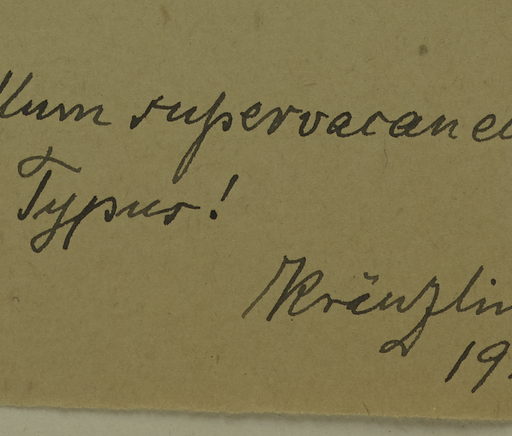 llum supervacane
Typus!
Kränzlin
19